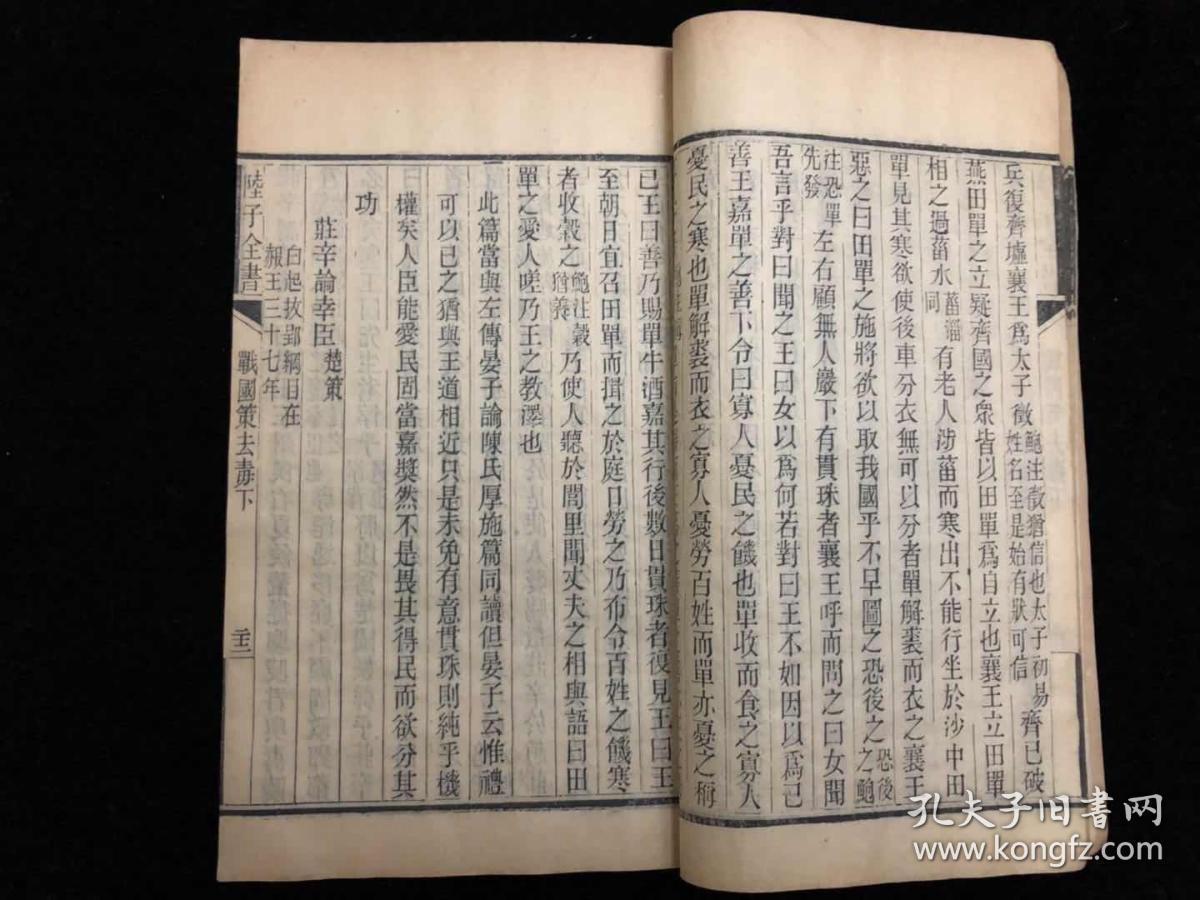 兵復齊墟襄王爲太子徵鮑注徵猶信也太子初易姓名至是始有狀可信齊已破
燕田單之立疑齊國之衆皆以田單爲自立也襄王立田單
相之過菑水菑淄同有老人涉菑而寒出不能行坐於沙中田
單見其寒欲使後車分衣無可以分者單解裘而衣之襄王
惡之曰田單之施將欲以取我國乎不早圖之恐後之恐後之鮑
注恐單先發左右顧無人巖下有貫珠者襄王呼而問之曰女聞
吾言乎對曰聞之王曰女以爲何若對曰王不如因以爲己
善王嘉單之善下令曰寡人憂民之饑也單收而食之寡人
憂民之寒也單解裘而衣之寡人憂勞百姓而單亦憂之稱
已王曰善乃賜單牛酒嘉其行後數日貫珠者復見王曰王
至朝日宜召田單而揖之於庭口勞之乃布令百姓之饑寒
者收穀之鮑注穀猶養乃使人聽於閭里聞丈夫之相與語曰田
單之愛人嗟乃王之教澤也
此篇當與左傳晏子論陳氏厚施篇同讀但晏子云惟禮
可以已之猶與王道相近只是未免有意貫珠則純乎機
權矣人臣能愛民固當嘉獎然不是畏其得民而欲分其
功
莊辛論幸臣楚策
白起拔郢綱目在
赧王三十七年
陸子全書
戰國策去毒下
二十二
孔夫子旧书网
www.kongfz.com